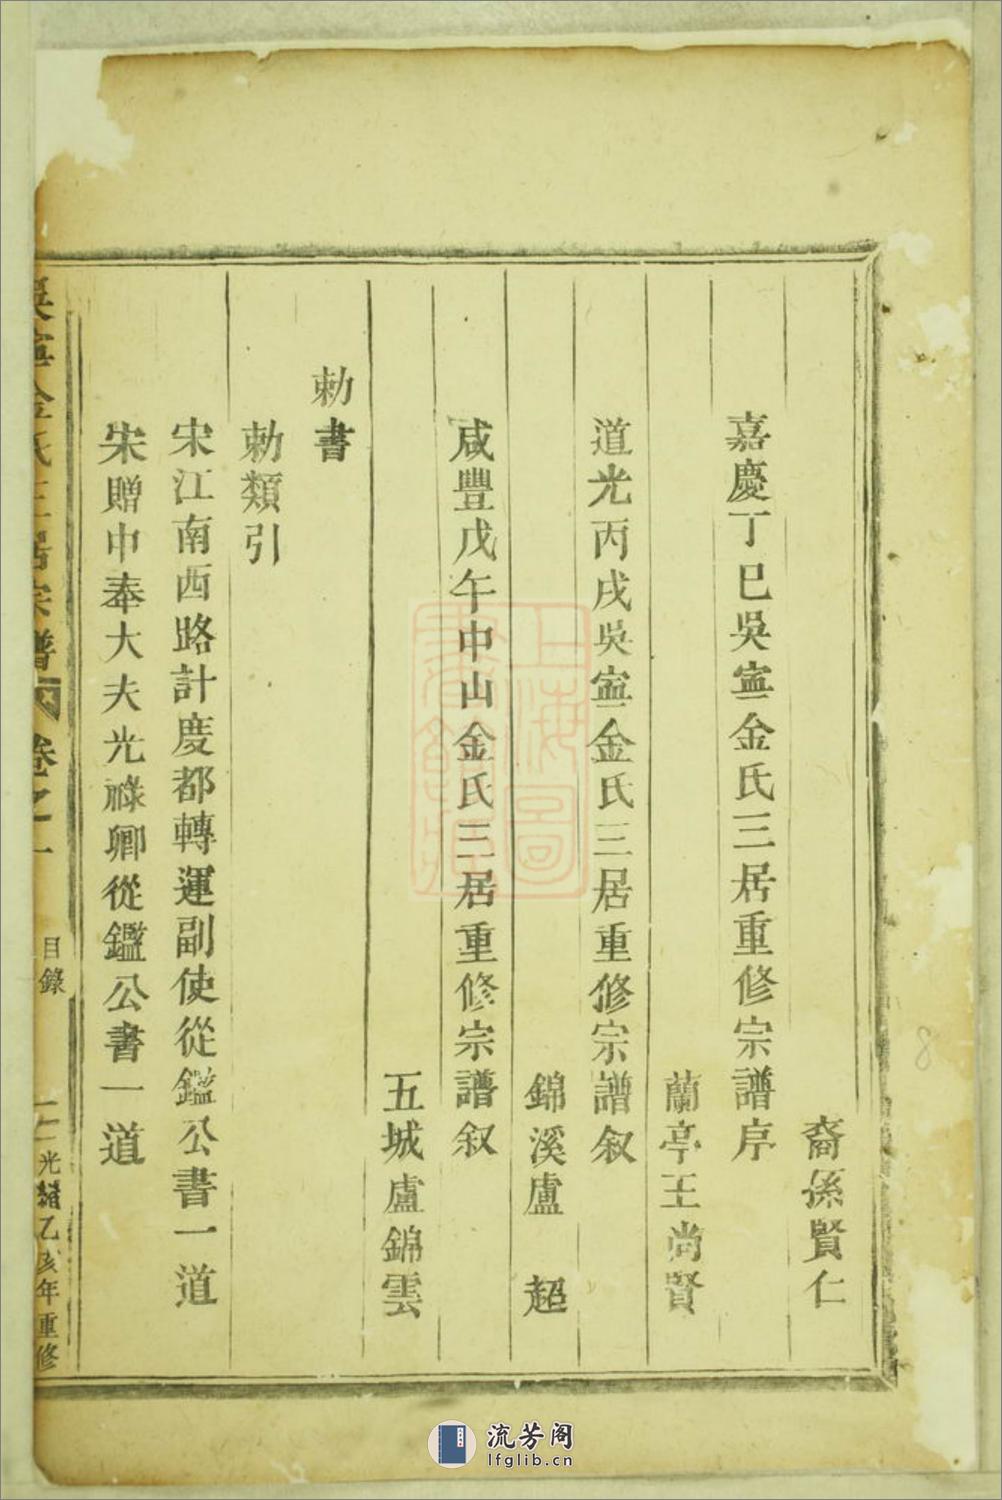 裔孫賢仁
嘉慶丁巳吳寧金氏三居重修宗譜序
蘭亭王尚賢
道光丙戌吳寧金氏三居重修宗譜叙
錦溪盧　超
咸豐戊午中山金氏三居重修宗譜叙
五城盧錦雲
勅書
勅類引
宋江南西路計度都轉運副使從鑑公書一道
宋贈中奉大夫光祿卿從鑑公書一道
吳寧金氏三居宗譜　卷之一　目錄　二　光緒乙亥年重修
上海圖
書館藏
8
流芳阁
lfglib.cn